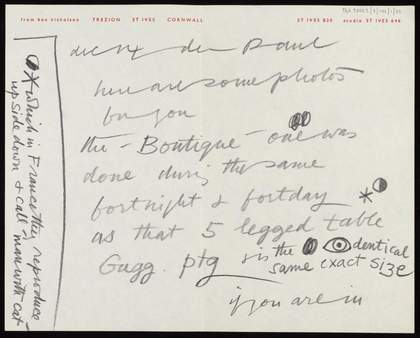 from ben nicholson TREZION ST IVES CORNWALL ST IVES 828 studio ST IVES 648
dec 14 dear Paul
here are some photos
for you
the - Boutique - one was
done during the same
fortnight & fortday
as that 5 legged table
Gugg. ptg & is the dentical
same exact size
if you are in
* which in France they reproduce
upside down & call man with cat